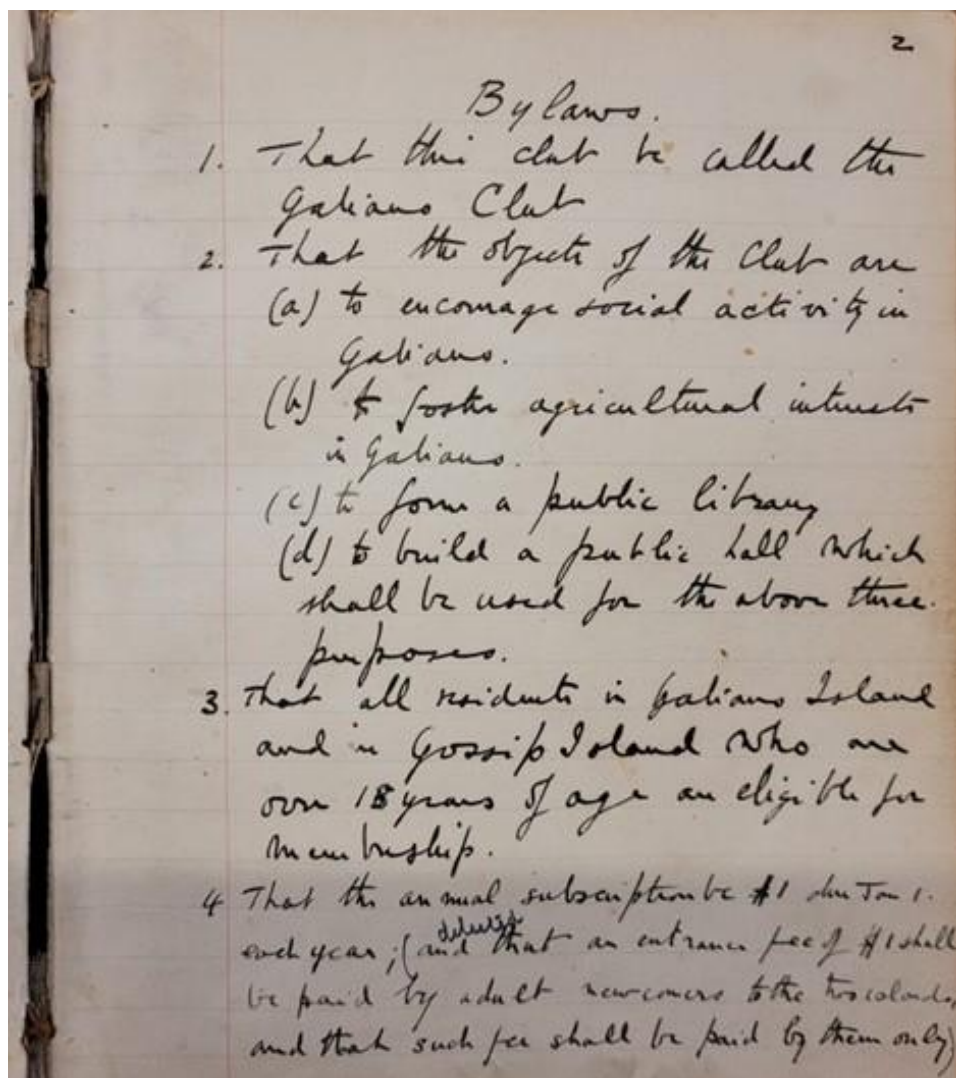 2
Bylaws.
1. That this club be called the
Galiano Club
2. That the objects of the Club are
(a) to encourage social activity in
Galiano.
(b) to foster agricultural interests
in Galiano.
(c) to form a public library
(d) to build a public hall which
shall be used for the above three
purposes.
3. That all residents in Galiano Island
and in Gossip Island who are
over 18 years of age are eligible for
membership.
4 That the annual subscription be $1 due Jan 1.
deleted
each year; (and that an entrance fee of $1 shall
be paid by adult newcomers to the two islands,
and that such fee shall be paid by them only)